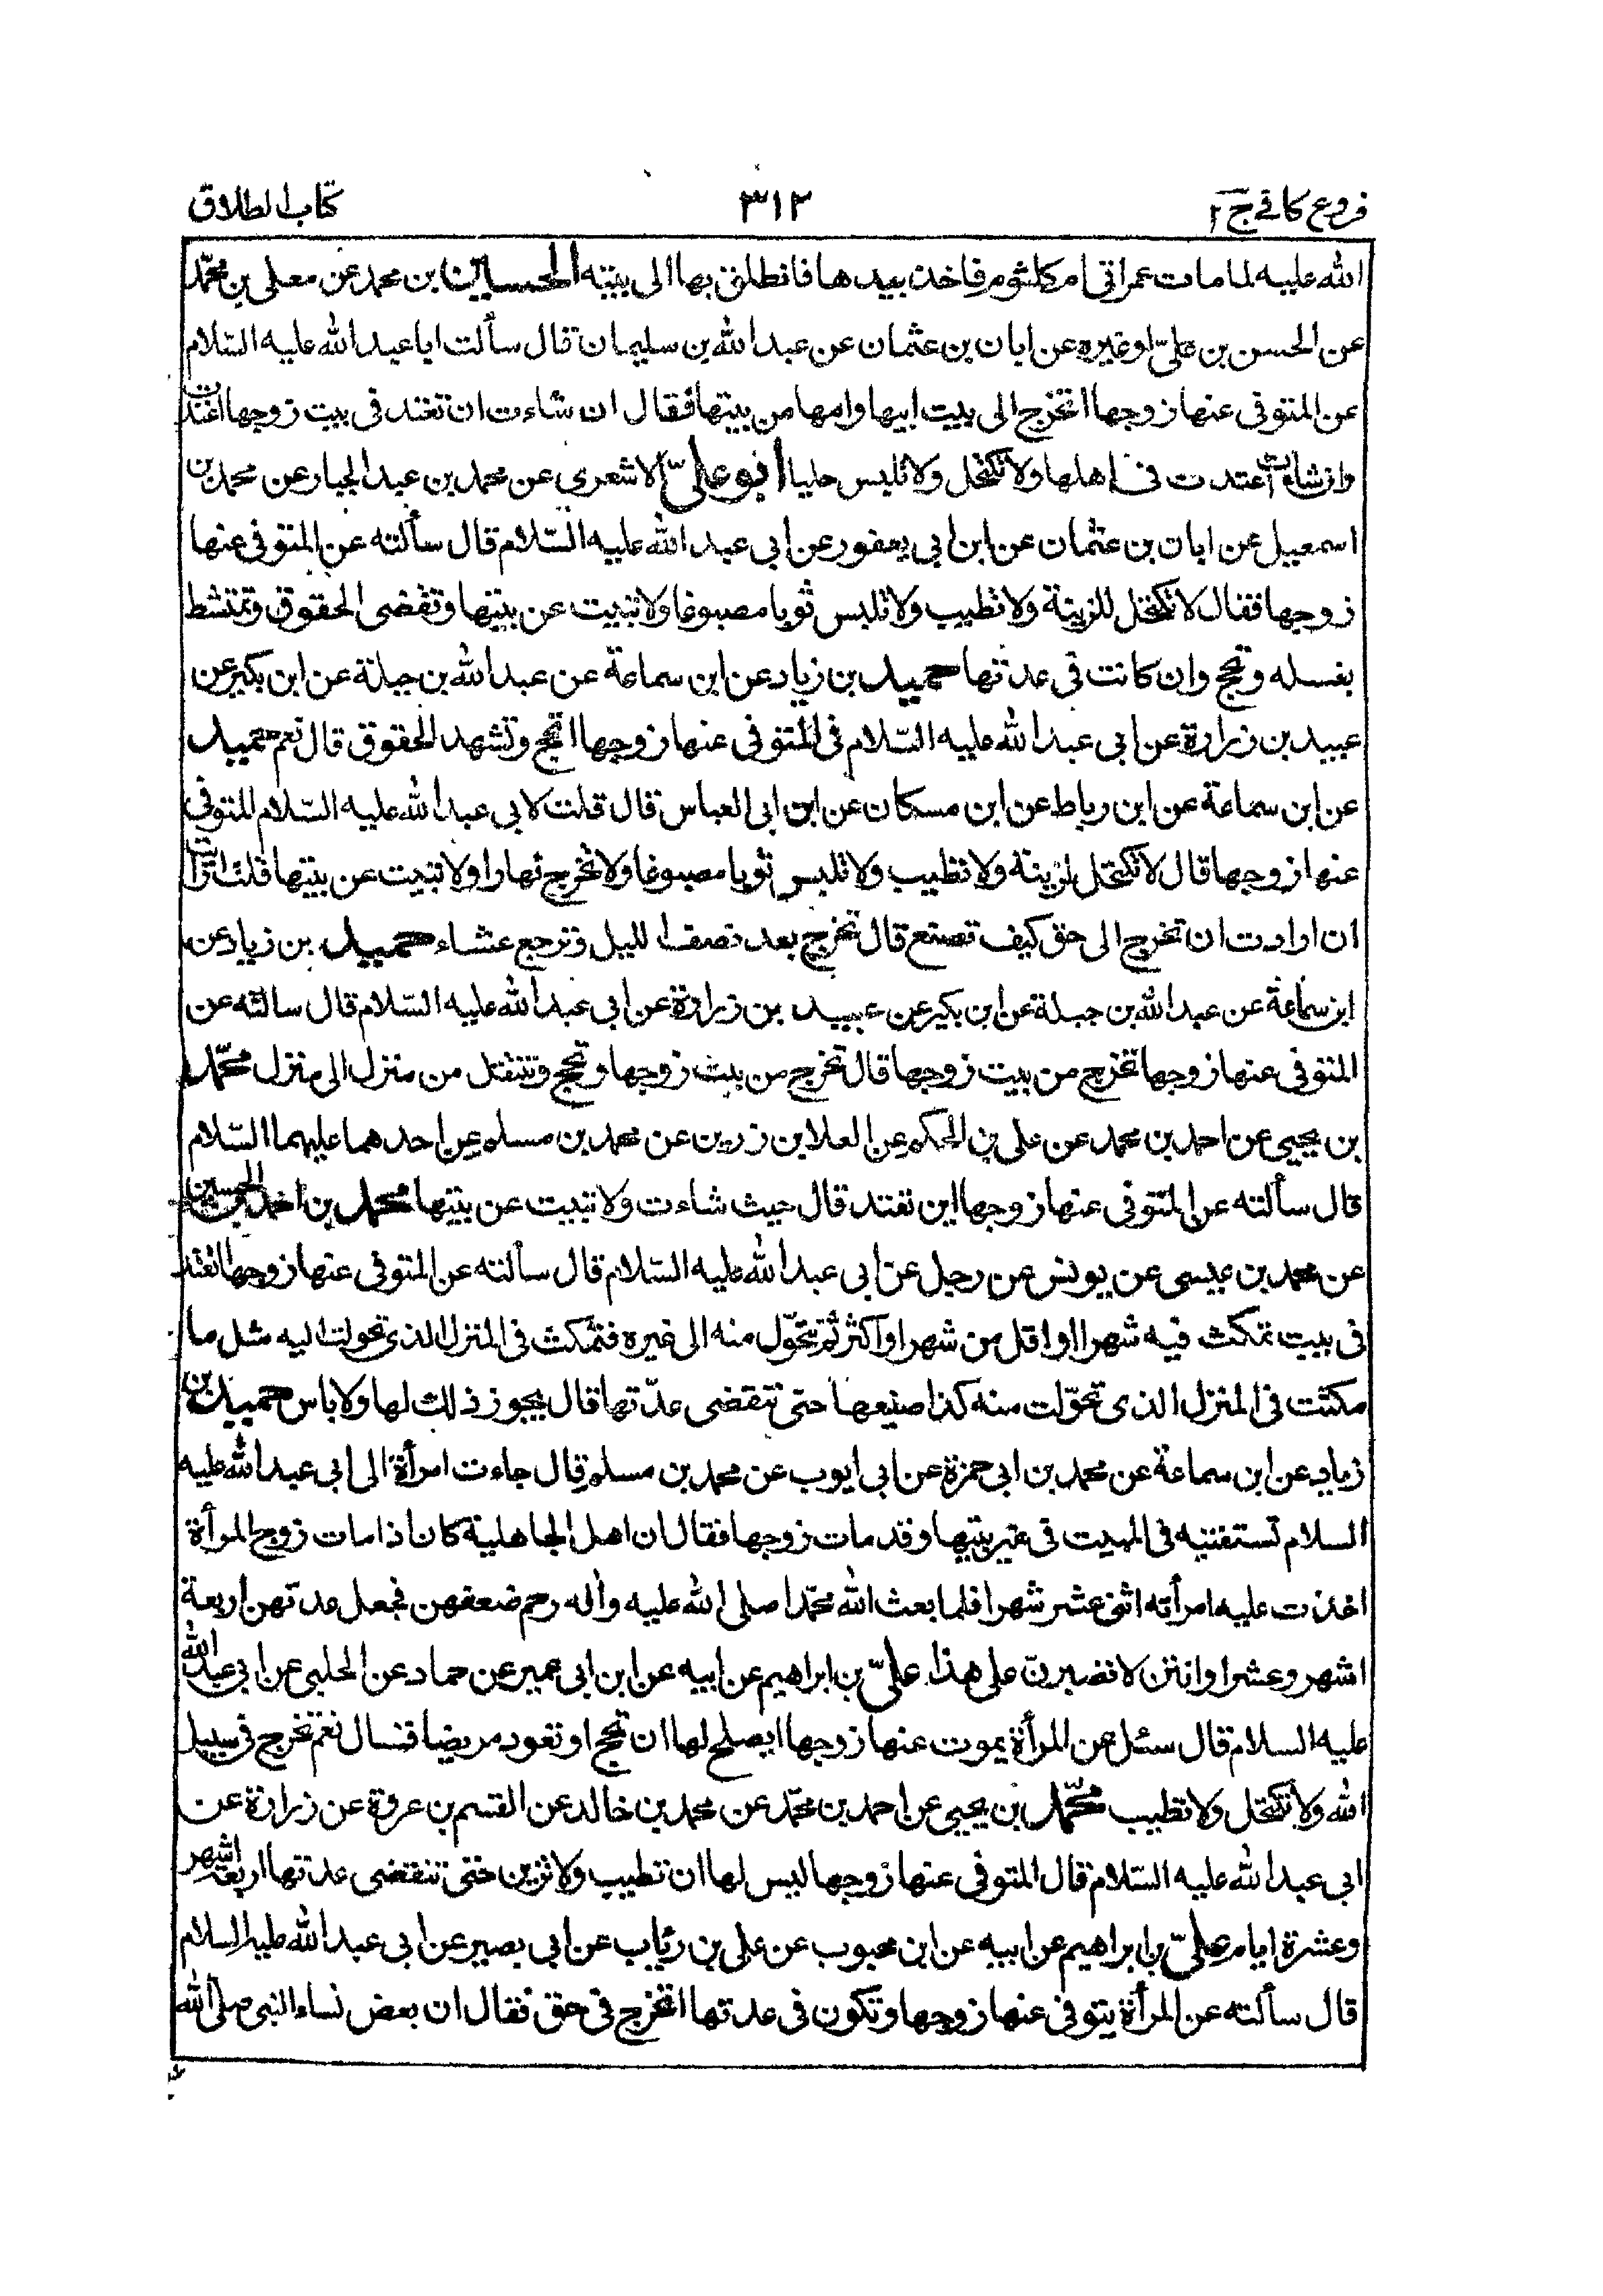 فروع كافي ج ٢
٣١٢
كتاب الطلاق
الله عليه لما مات عمر اتى ام كلثوم فاخذ بيدها فانطلق بها الى بيته الحسين بن محمد عن معلى بن محمّد
عن الحسن بن علىّ او غيره عن ابان بن عثمان عن عبد الله بن سليمان قال سألت ابا عبد الله عليه السّلام
عن المتوفى عنها زوجها اتخرج الى بيت ابيها وامها من بيتها فقال ان شاءت ان تعتد فى بيت زوجها اعتدت
وان شاءت اعتدت فى اهلها ولا تكتحل ولا تلبس حليا ابو علىّ الاشعرى عن محمد بن عبد الجبار عن محمد بن
اسمعيل عن ابان بن عثمان عن ابن ابى يعفور عن ابى عبد الله عليه السّلام قال سألته عن المتوفى عنها
زوجها فقال لا تكتحل للزينة ولا تطيب ولا تلبس ثوبا مصبوغا ولا تبيت عن بيتها وتقضى الحقوق وتمتشط
بغسله وتحج وان كانت فى عدتها حميد بن زياد عن ابن سماعة عن عبد الله بن جبلة عن ابن بكير عن
عبيد بن زرارة عن ابى عبد الله عليه السّلام فى المتوفى عنها زوجها اتحج وتشهد الحقوق قال نعم حميد
عن ابن سماعة عن ابن رباط عن ابن مسكان عن ابن ابى العباس قال قلت لابى عبد الله عليه السّلام المتوفى
عنها زوجها قال لا تكتحل لزينة ولا تطيب ولا تلبس ثوبا مصبوغا ولا تخرج نهارا ولا تبيت عن بيتها قلت ارأيت
ان ارادت ان تخرج الى حق كيف تصنع قال تخرج بعد نصف الليل وترجع عشاء حميد بن زياد عن
ابن سماعة عن عبد الله بن جبلة عن ابن بكير عن عبيد بن زرارة عن ابى عبد الله عليه السّلام قال سالته عن
المتوفى عنها زوجها تخرج من بيت زوجها قال تخرج من بيت زوجها وتحج وتنتقل من منزل الى منزل محمّد
بن يحيى عن احمد بن محمد عن على بن الحكم عن العلا بن رزين عن محمد بن مسلم عن احدهما عليهما السّلام
قال سألته عن المتوفى عنها زوجها اين تعتد قال حيث شاءت ولا تبيت عن بيتها محمد بن احمد الحسين
عن محمد بن عيسى عن يونس عن رجل عن ابى عبد الله عليه السّلام قال سألته عن المتوفى عنها زوجها اتعتد
فى بيت تمكث فيه شهرا او اقل من شهر او اكثر ثم تتحوّل منه الى غيره فتمكث فى المنزل الذى تحولت اليه مثل ما
مكثت فى المنزل الذى تحوّلت منه كذا صنيعها حتى تنقضى عدّتها قال يجوز ذلك لها ولا باس حميد بن
زياد عن ابن سماعة عن محمد بن ابى حمزة عن ابى ايوب عن محمد بن مسلم قال جاءت امرأة الى ابى عبد الله عليه
السلام تستفتيه فى المبيت فى غير بيتها وقد مات زوجها فقال ان اهل الجاهلية كان اذا مات زوج المرأة
احدت عليه امرأته اثنى عشر شهرا فلما بعث الله محمّدا صلى الله عليه وآله رحم ضعفهن فجعل عدتهن اربعة
اشهر وعشرا وانتن لا تصبرن على هذا علىّ بن ابراهيم عن ابيه عن ابن ابى عمير عن حماد عن الحلبى عن ابى عبد الله
عليه السلام قال سئل عن المرأة يموت عنها زوجها ايصلح لها ان تحج او تعود مريضا قال نعم تخرج فى سبيل
الله ولا تكتحل ولا تطيب محمّد بن يحيى عن احمد بن محمّد عن محمد بن خالد عن القسم بن عروة عن زرارة عن
ابى عبد الله عليه السّلام قال المتوفى عنها زوجها ليس لها ان تطيب ولا تزين حتى تنقضى عدتها اربعة اشهر
وعشرة ايام علىّ بن ابراهيم عن ابيه عن ابن محبوب عن على بن رئاب عن ابى بصير عن ابى عبد الله عليه السلام
قال سألته عن المرأة يتوفى عنها زوجها وتكون فى عدتها اتخرج فى حق فقال ان بعض نساء النبى صلى الله